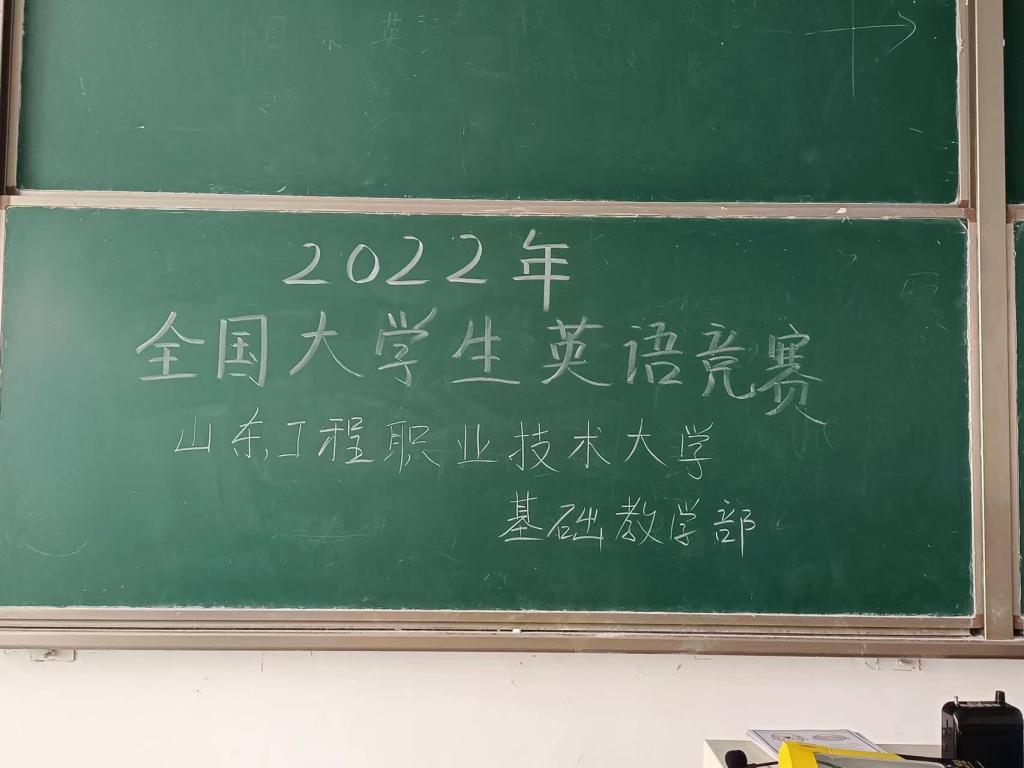 2022年
全国大学生英语竞赛
山东工程职业技术大学
基础教学部